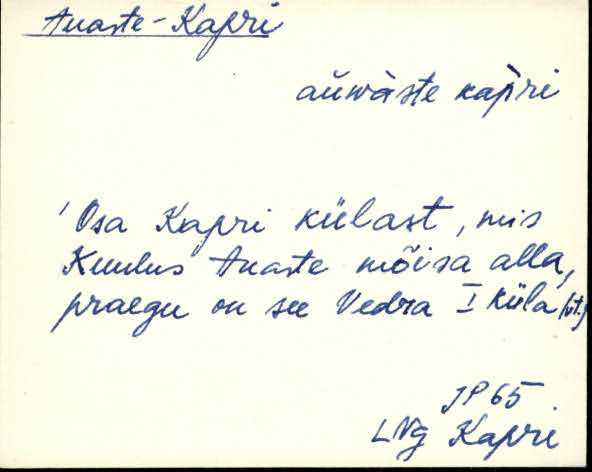 Auaste-Kapri
aùwàste kàpri
'Osa Kapri külast, mis
Kuulus Auaste mõisa alla,
praegu on see Vedra I küla (vt.)
JP 65
LNg Kapri